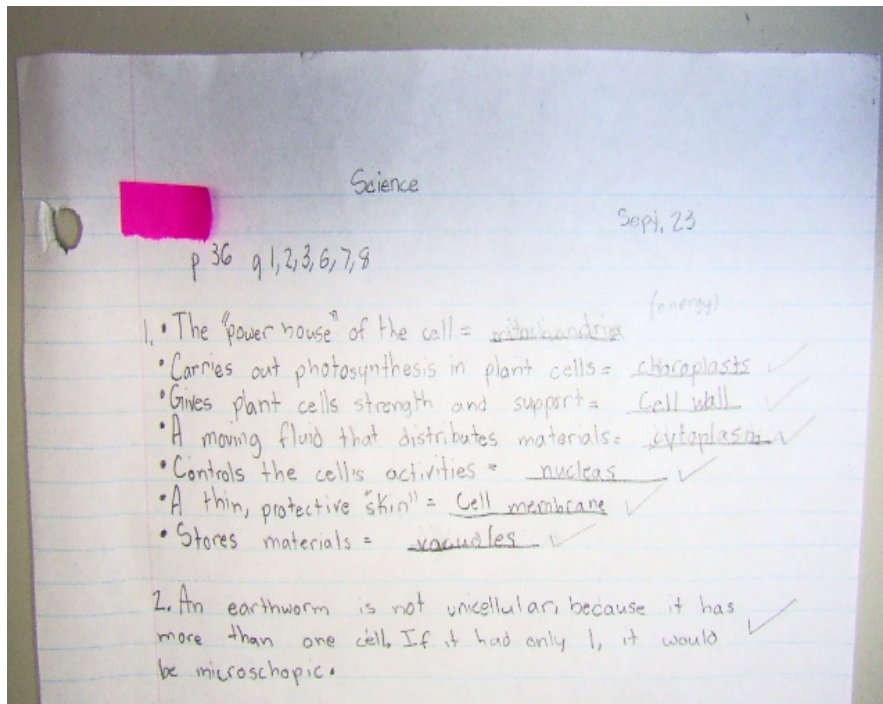 Science
Sept. 23
p 36 q 1,2,3,6,7,8
(energy)
1. • The "power house" of the cell = mitochondria
• Carries out photosynthesis in plant cells = chloroplasts
• Gives plant cells strength and support = Cell wall
• A moving fluid that distributes materials = cytoplasm
• Controls the cell's activities = nucleas
• A thin, protective "skin" = Cell membrane
• Stores materials = vacuoles
2. An earthworm is not unicellular, because it has
more than one cell. If it had only 1, it would
be microschopic.